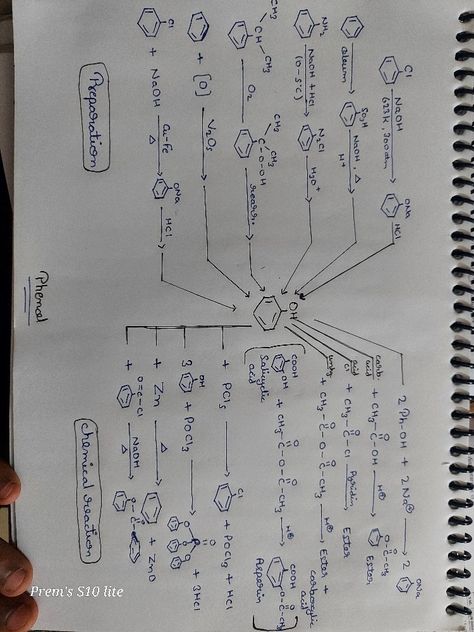 Preparation
Cl
NaOH
623K, 300atm
ONa
HCl
oleum
SO₃H
NaOH, Δ
H⁺
NH₂
NaOH + HCl
(0-5°C)
N₂Cl
H₂O⁺
CH₃
CH
CH₃
O₂
CH₃
C-O-OH
CH₃
+ [O]
V₂O₅
Cl
+ NaOH
Cu-Fe
Δ
ONa
HCl
OH
Phenol
Chemical reaction
2 Ph-OH + 2 Na
2
ONa
carbo
acid
+ CH₃-C-OH
O
H⊕
O-C-CH₃
O
Ester
acid
cl
+ CH₃-C-Cl
O
Pyridin
Ester
+ CH₃-C-O-C-CH₃
O
O
H⊕
Ester +
carboxylic
acid
COOH
OH
Salicyclic
acid
+ CH₃-C-O-C-CH₃
O
O
H⊕
COOH
O-C-CH₃
O
Asperin
+ PCl₅
Cl
+ POCl₃ + HCl
3
OH
+ POCl₃
+ 3HCl
+ Zn
Δ
+ ZnO
+
O=C-Cl
NaOH
Δ
Prem's S10 lite